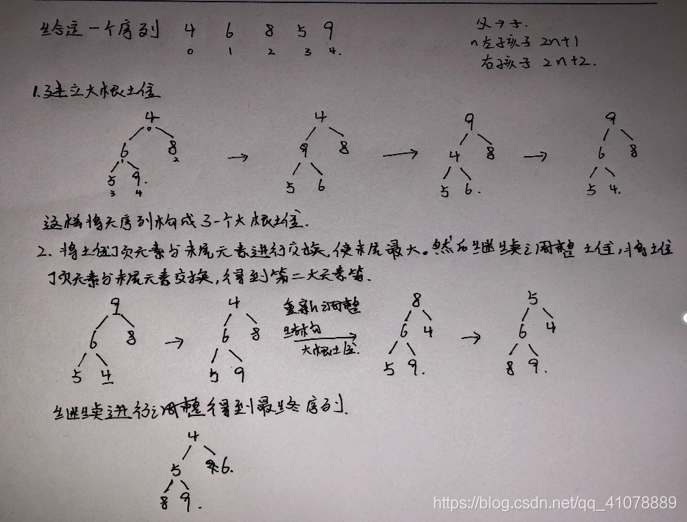 给定一个序列 4 6 8 5 9
0 1 2 3 4.
父→子.
n左孩子 2n+1
右孩子 2n+2.
1.建立大根堆
4 4 9 9
6 8 → 9 8 → 4 8 → 6 8
5 9. 5 6 5 6. 5 4.
0 1 2 3 4
这样将无序列构成了一个大根堆.
2. 将堆顶元素与末尾元素进行交换,使末尾最大。然后继续调整堆,将堆
顶元素与末尾元素交换,得到第二大元素等.
重新调整
结构
大根堆.
9 4 8 5
6 8 → 6 8 → 6 4 → 6 4
5 4 5 9 5 9. 8 9.
继续进行调整得到最终序列.
4
5 6.
8 9.
https://blog.csdn.net/qq_41078889